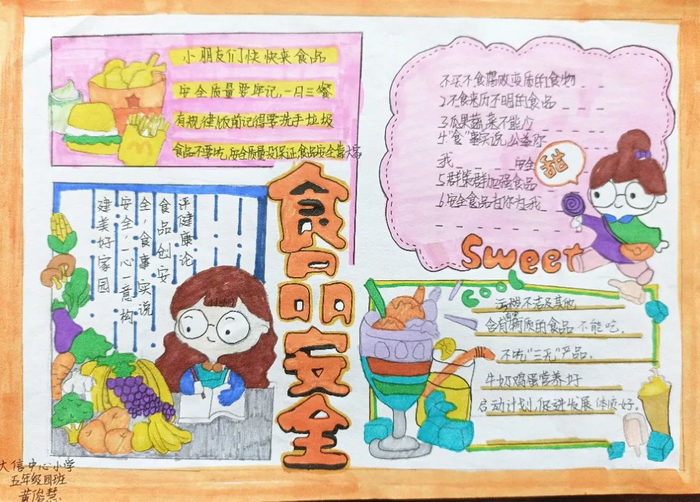 小朋友们快快来食品
安全质量要牢记,一日三餐
有规律饭前记得要洗手垃圾
食品不要吃,安全质量没保证食品安全靠大家
食品安全
不买不食腐败变质的食物
2不食来历不明的食品
3瓜果蔬菜不能少
4."食"事实说,公益你
我 安全
5群策群力食品
6安全食品在你在我
甜
Sweet
评健康论
食品创安
全,食事实说
安全一心一意构
建美好家园
cool
含有物质的食品不能吃,
不吃"三无"产品,
牛奶鸡蛋营养好
启动计划,促进发展体质好。
大信中心小学
五年级四班